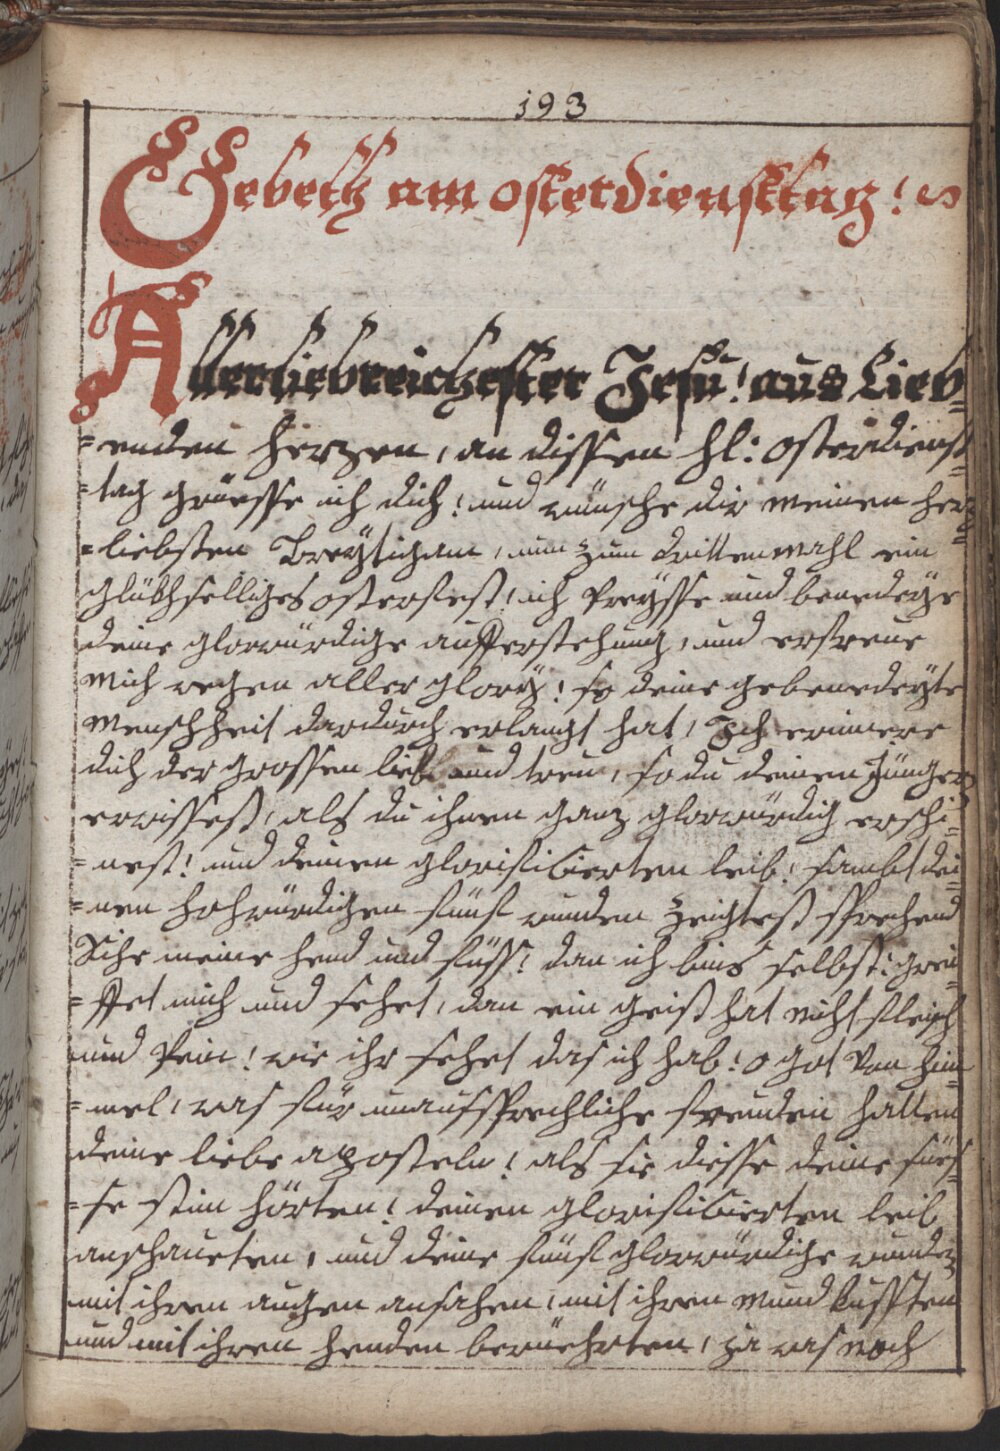 193
Gebett am osterdiensttag!
Allerliebreichester Jesu! aus Lieb=
=enden herzen, an dissen hl: osterdienst=
=tag grüesse ich dich! und wünsche dir meinen herz=
=liebsten Breÿtigam, nun zum drittenmahl ein
glükhselliges osterfest! ich Preÿsse und benedeÿe
deine glorwürdige aufferstehung, und erfreue
mich wegen aller glorÿ! so deine gebenedeÿte
menschheit dardurch erlangt hat, Ich erinnere
dich der grossen lieb und treu, so du deinen Jünger
erwissest, als du ihnen ganz glorwürdig erschi=
=nest! und deinen glorificierten leib! sambt dei=
=nen hochwürdigen fünf wunden zeigtest sprechend
Sihe meine hend und füss! dan ich bins selbst: grei=
=ffet mich und sehet, dan ein geist hat nicht fleisch
und Pein! wie ihr sehet das ich hab! o got Von him=
=mel, was für unaussprechliche freuden hatten
deine liebe aposteln! als sie diesse deine sües=
=se stim hörten! deinen glorificierten leib
anschaueten, und deine fünf glorwürdige wunden
mit ihren augen ansahen, mit ihren mund kussten
und mit ihren henden berüehrten, ja was noch